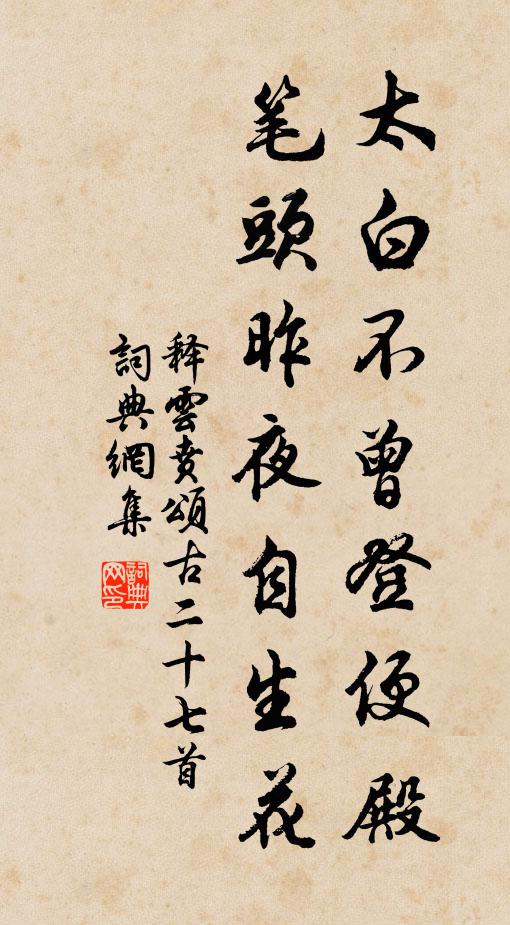 太白不曾登便殿
笔頭昨夜自生花
释雲賁頌古二十七首
詞典網集
詞典网印